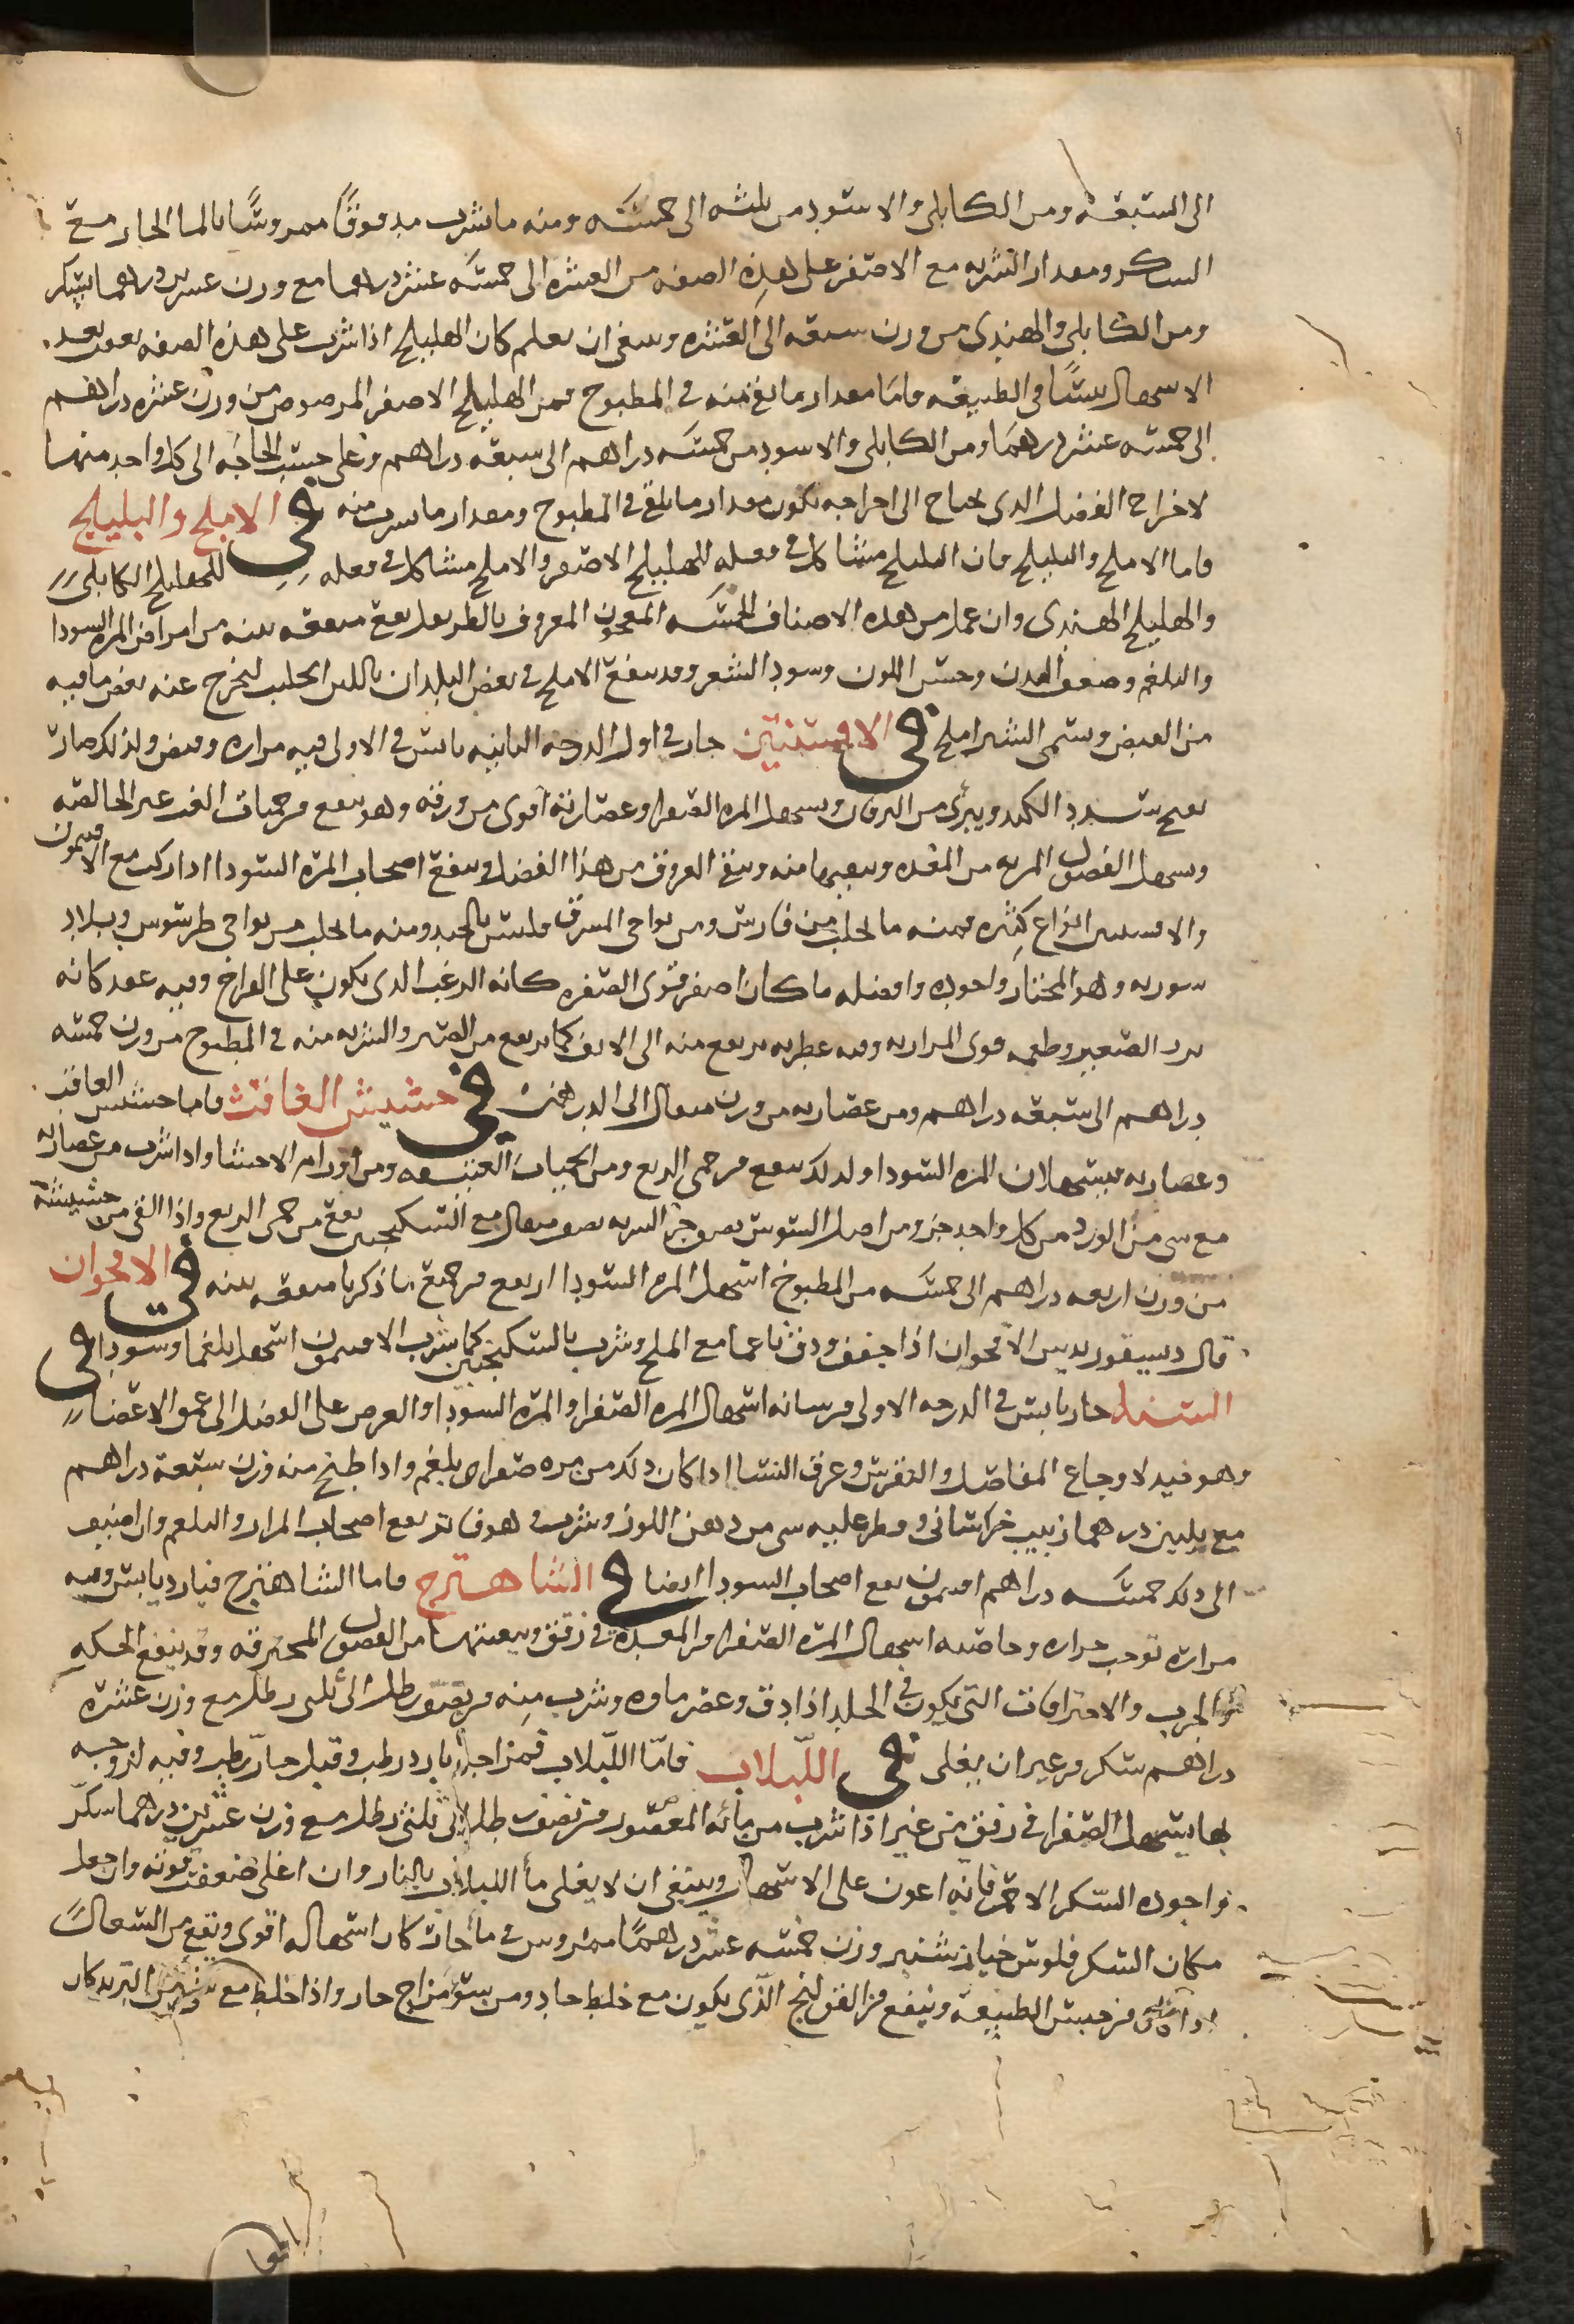 الى السبعة ومن الكابلى والاسود من ثلثه الى خمسه ومنه ما يشرب مدقوقًا ممروسًا بالما الحار مع
السكر ومقدار الشربه مع الاصفر على هذه الصفه من العشره الى خمسه عشر درهما مع وزن عشرين درهما سكر
ومن الكابلى والهندى من وزن سبعه الى العشره وينبغى ان يعلم كان الهليلج اذا شرب على هذه الصفه بعد
الاسهال يبسًا فى الطبيعه واما مقدار ما يقع منه فى المطبوخ فمن الهليلج الاصفر المرضوض من وزن عشره دراهم
الى خمسه عشر درهمًا ومن الكابلى والاسود من خمسه دراهم الى سبعه دراهم وعلى حسب الحاجه الى كل واحد منها
لاخراج الفضل الذى يحتاج الى اخراجه يكون مقدار ما يلقى فى المطبوخ ومقدار ما يشرب منه فى الاملج والبليلج
فاما الاملج والبليلج فان البليلج مشاكل فى فعله للهليلج الاصفر والاملج مشاكل فى فعله للهليلج الكابلى
والهليلج الهندى وان عمل من هذه الاصناف الخمسه المعجون المعروف بالطريفل نفع منفعه بينه من امراض المره السودا
والبلغم وضعف البدن وحسن اللون وسود الشعر وقد ينقع الاملج فى بعض البلدان باللبن الحليب ليخرج عنه بعض ما فيه
من القبض وسمى الشير املج فى الافسنتين حار فى اول الدرجه الثانيه يابس فى الاولى فيه مراره وقبض ولذلك صار
يفتح سدد الكبد ويبرئ من اليرقان ويسهل المره الصفرا وعصارته اقوى من ورقه وهو ينفع من حميات الغب غير الخالصه
ويسهل الفضول المريه من المعده وينقيها منه وينقى العروق من هذا الفضل وينفع اصحاب المره السودا اذا ركب مع الافيمون
والافسنتين انواع كثيره فمنه ما يجلب من فارس ومن نواحى المشرق وليس بالجيد ومنه ما يجلب من نواحى طرسوس وبلاد
سوريه وهو المختار واجوده وافضله ما كان اصفر قوى الصفره كانه الزغب الذى يكون على الفراخ وفيه عقد كانه
بزر الصعتر وطعمه قوى المراره وفيه عطريه يرتفع منه الى الانف كما يرتفع من الصبر والشربه منه فى المطبوخ من وزن خمسه
دراهم الى سبعه دراهم ومن عصارته من وزن مثقال الى الدرهمين فى حشيش الغافث فاما حشيش الغافث
وعصارته فيسهلان المره السودا ولذلك ينفع من حمى الربع ومن الحميات العتيقه ومن اورام الاحشا واذا شرب من عصارته
مع شى من الورد من كل واحد جزو ومن اصل السوس نصف جز الشربه نصف مثقال مع السكنجبين نفع من حمى الربع واذا القى من حشيشه
من وزن اربعه دراهم الى خمسه من المطبوخ اسهل المره السودا ونفع من جميع ما ذكرنا منفعه بينه فى الاقحوان
قال ديسقوريديس الاقحوان اذا جفف ودق ناعما مع الملح وشرب بالسكنجبين كما يشرب الافيمون اسهل بلغما وسودا فى
السنا حار يابس فى الدرجه الاولى من شانه اسهال المره الصفرا والمره السودا والغوص على الفضل الى عمق الاعضا
وهو مفيد لاوجاع المفاصل والنقرس وعرق النسا اذا كان ذلك من مره صفرا وبلغم واذا طبخ منه وزن سبعة دراهم
مع ثلثين درهما زبيب خراسانى وقطر عليه شى من دهن اللوز وشرب وهو فاتر نفع اصحاب المرار والبلغم وان اضيف
الى ذلك خمسه دراهم افيمون نفع اصحاب السودا ايضا فى الشاهترج فاما الشاهترج فبارد يابس وفيه
مراره توجب حراره وخاصته اسهال المره الصفرا من المعده فى رفق وينقيها من الفضول المحترقه وقد ينفع الحكه
والجرب والاحتراقات التى تكون فى الجلد اذا دق وعصر ماوه وشرب منه من نصف رطل الى ثلثى رطل مع وزن عشرة
دراهم سكر من غير ان يغلى فى اللبلاب فامّا اللبلاب فمزاجه بارد رطب وقيل حارّ رطب وفيه لزوجه
بها يسهل الصفرا فى رفق من غير اذا شرب من مائه المعصور من نصف رطل الى ثلثى رطل مع وزن عشرين درهما سكّر
واجوده السكر الاحمر فانه اعون على الاسهال وينبغى ان لا يغلى مأ اللبلاب بالنار وان اغلى ضعفت قوته وان جعل
مكان السكر فلوس خيار شنبر وزن خمسه عشر درهمًا ممروس فى مأ حار كان اسهاله اقوى ونفع من السعال
من حبس الطبيعه وينفع من القولنج الذى يكون مع خلط حاد ومن سؤ مزاج حار واذا خلط مع التربد كان